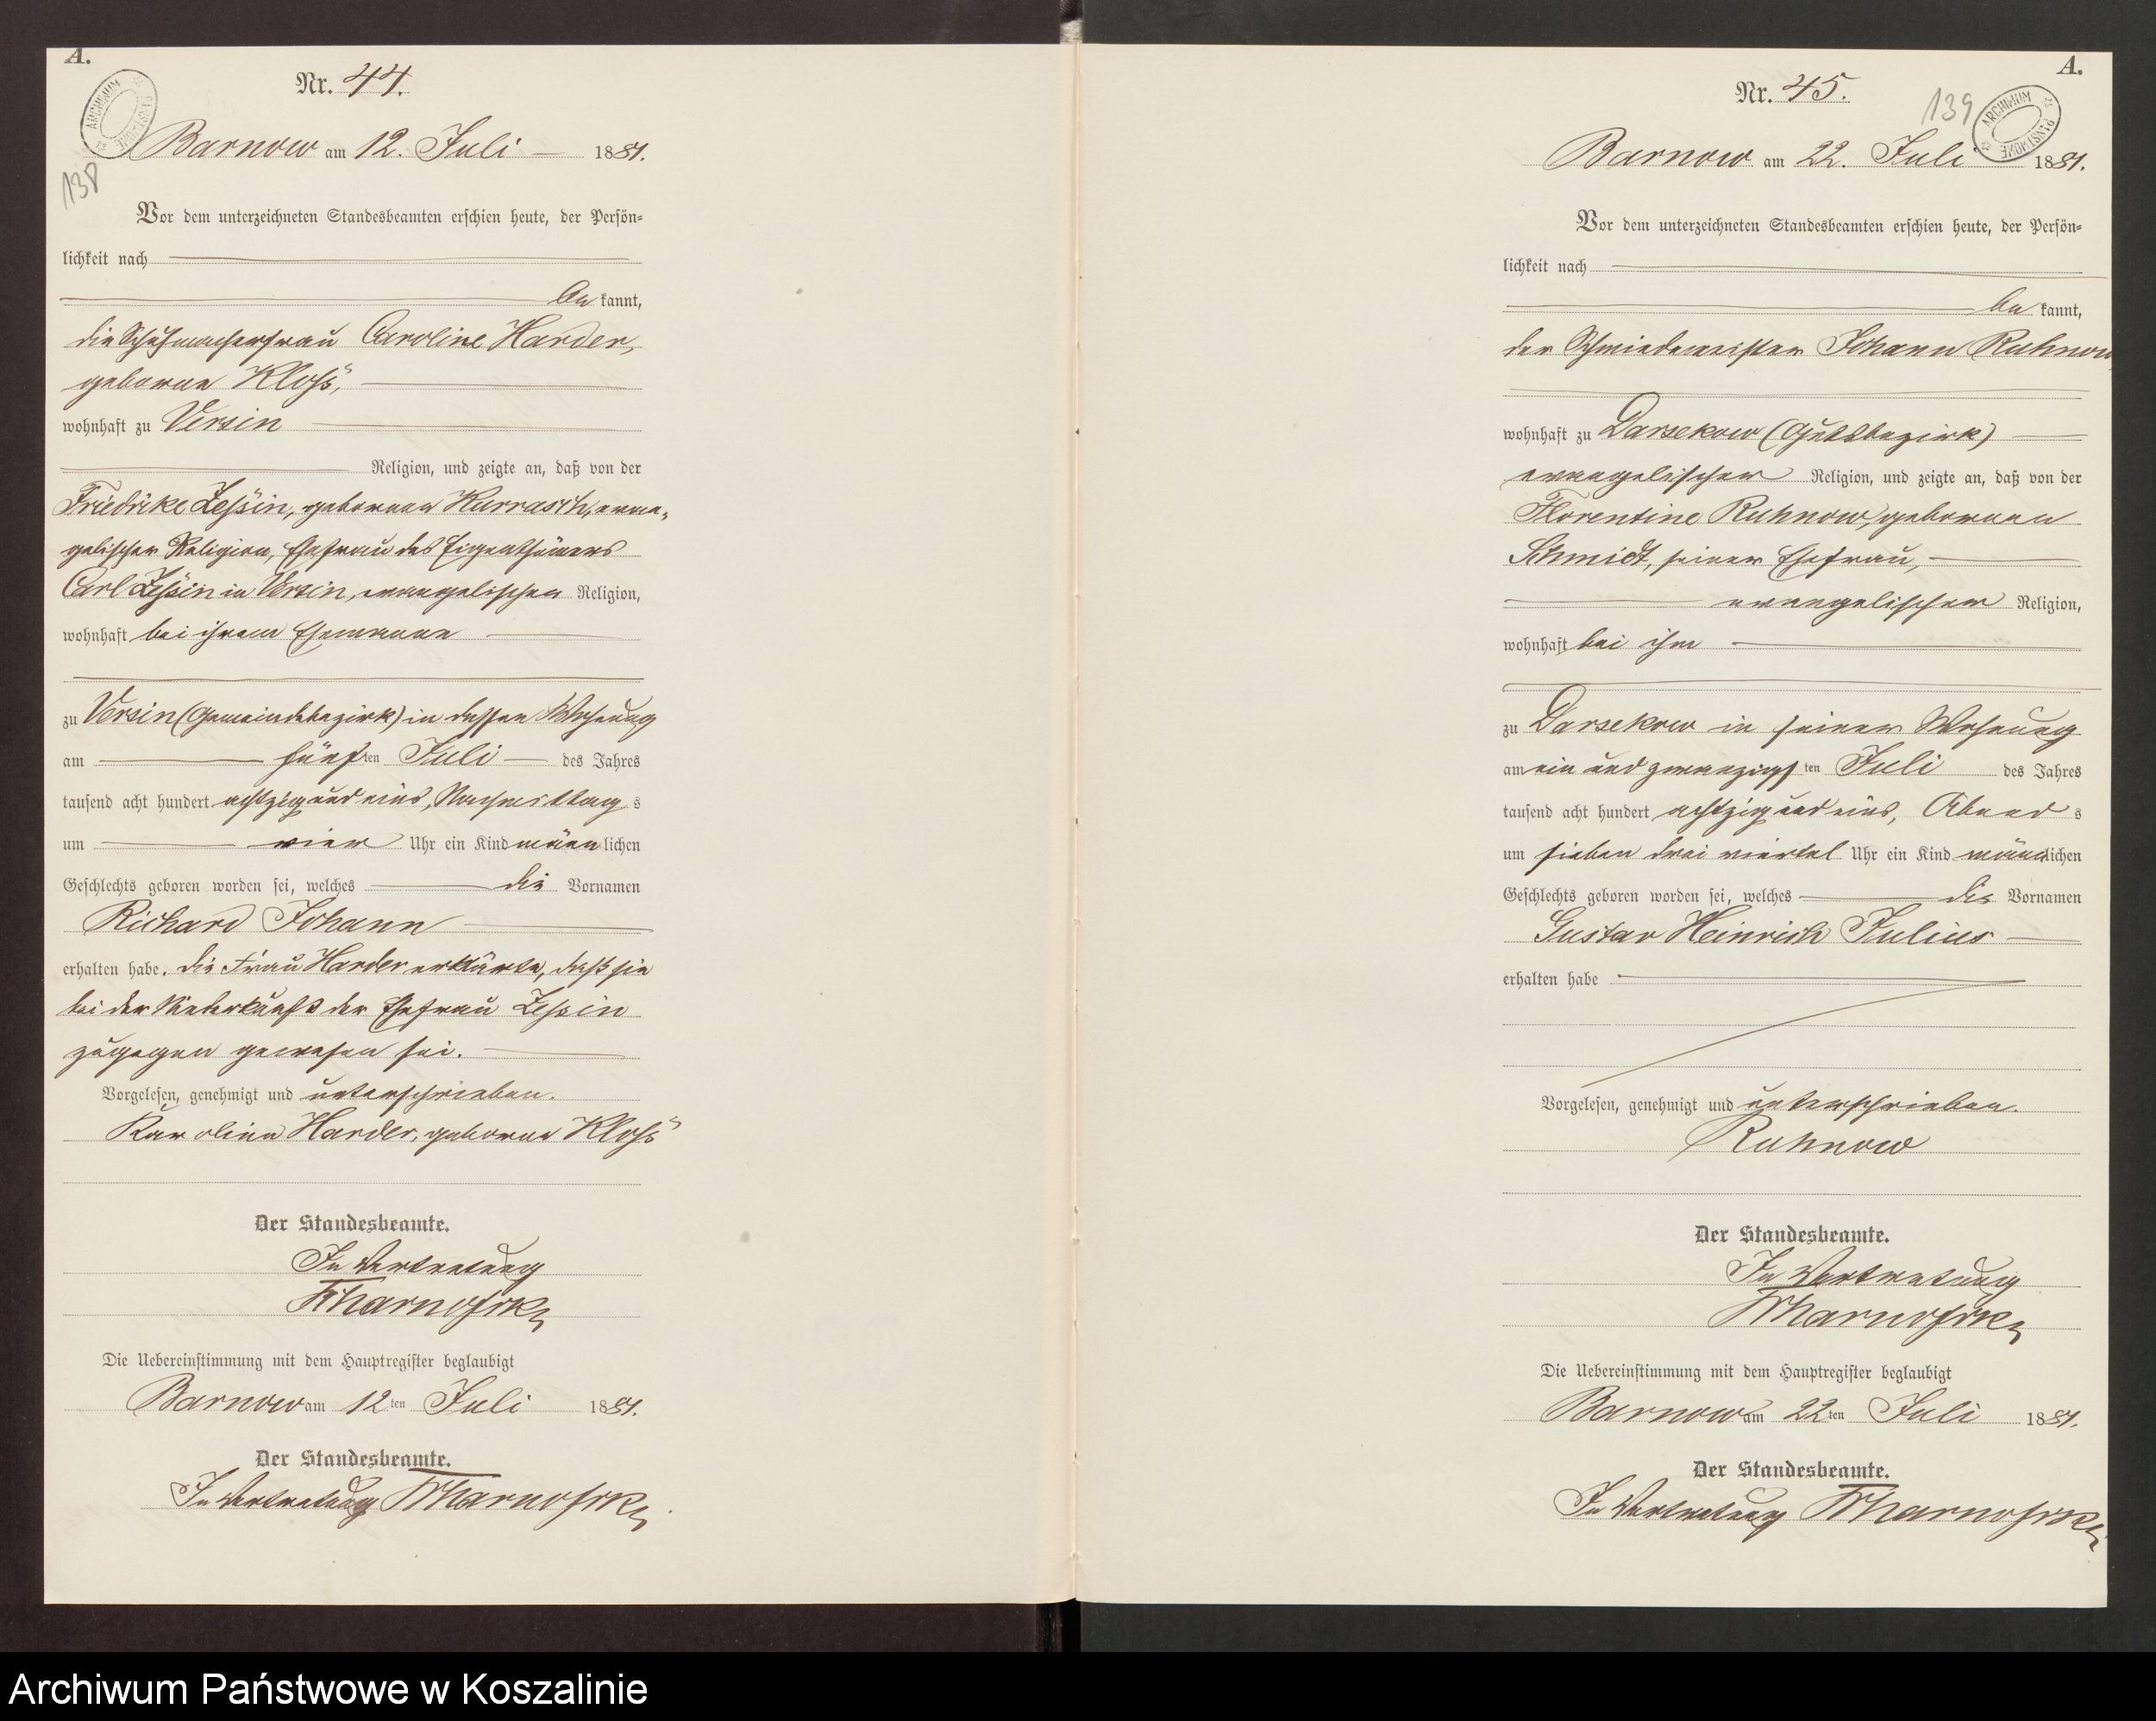 A.
Nr. 44.
ARCHIWUM PAŃSTWOWE
138
Barnow am 12. Juli 1881.
Vor dem unterzeichneten Standesbeamten erschien heute, der Persön=
lichkeit nach
bekannt,
die Schuhmacherfrau Caroline Harder,
geborne Kloß,
wohnhaft zu Versin
Religion, und zeigte an, daß von der
Friedrike Zessin, gebornen Kurrasch, evan=
gelischer Religion, Ehefrau des Eigenthümers
Carl Zessin in Versin, evangelischen Religion,
wohnhaft bei ihrem Ehemanne
zu Versin (Gemeindebezirk) in dessen Wohnung
am fünften Juli des Jahres
tausend acht hundert achtzig und eins, Nachmittags
um vier Uhr ein Kind männlichen
Geschlechts geboren worden sei, welches die Vornamen
Richard Johann
erhalten habe. Die Frau Harder erklärte, daß sie
bei der Niederkunft der Ehefrau Zessin
zugegen gewesen sei.
Vorgelesen, genehmigt und unterschrieben.
Karoline Harder, geborne Kloß
Der Standesbeamte.
In Vertretung
Die Uebereinstimmung mit dem Hauptregister beglaubigt
Barnow am 12ten Juli 1881.
Der Standesbeamte.
In Vertretung
A.
Nr. 45.
139
ARCHIWUM PAŃSTWOWE
Barnow am 22. Juli 1881.
Vor dem unterzeichneten Standesbeamten erschien heute, der Persön=
lichkeit nach
bekannt,
der Schmiedemeister Johann Ruhnow,
wohnhaft zu Darsekow (Gutsbezirk)
evangelischer Religion, und zeigte an, daß von der
Florentine Ruhnow, gebornen
Schmidt, seiner Ehefrau,
evangelischer Religion,
wohnhaft bei ihm
zu Darsekow in seiner Wohnung
am ein und zwanzigsten Juli des Jahres
tausend acht hundert achtzig und eins, Abends
um sieben drei viertel Uhr ein Kind männlichen
Geschlechts geboren worden sei, welches die Vornamen
Gustav Heinrich Julius
erhalten habe
Vorgelesen, genehmigt und unterschrieben.
Ruhnow
Der Standesbeamte.
In Vertretung
Die Uebereinstimmung mit dem Hauptregister beglaubigt
Barnow am 22ten Juli 1881.
Der Standesbeamte.
In Vertretung
Archiwum Państwowe w Koszalinie